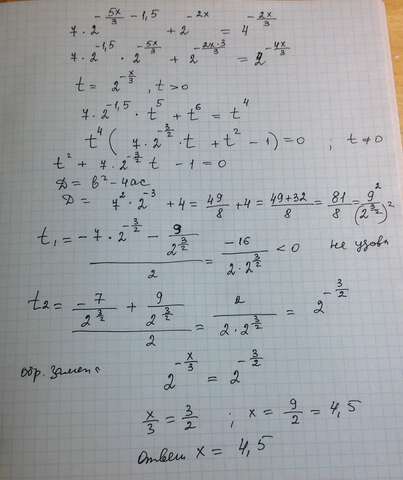 7 · 2^{-5x/3 - 1,5} + 2^{-2x} = 4^{-2x/3}
7 · 2^{-1,5} · 2^{-5x/3} + 2^{-2x·3/3} = 2^{-4x/3}
t = 2^{-x/3}, t > 0
7 · 2^{-1,5} · t^5 + t^6 = t^4
t^4 ( 7 · 2^{-3/2} · t + t^2 - 1) = 0 ; t ≠ 0
t^2 + 7 · 2^{-3/2} t - 1 = 0
D = b^2 - 4ac
D = 7^2 · 2^{-3} + 4 = 49/8 + 4 = (49+32)/8 = 81/8 = 9^2/(2^{3/2})^2
t_1 = (-7 · 2^{-3/2} - 9/2^{3/2})/2 = -16/(2 · 2^{3/2}) < 0 не удов
t_2 = (-7/2^{3/2} + 9/2^{3/2})/2 = 2/(2 · 2^{3/2}) = 2^{-3/2}
обр. замена
2^{-x/3} = 2^{-3/2}
x/3 = 3/2 ; x = 9/2 = 4,5
Ответ x = 4,5